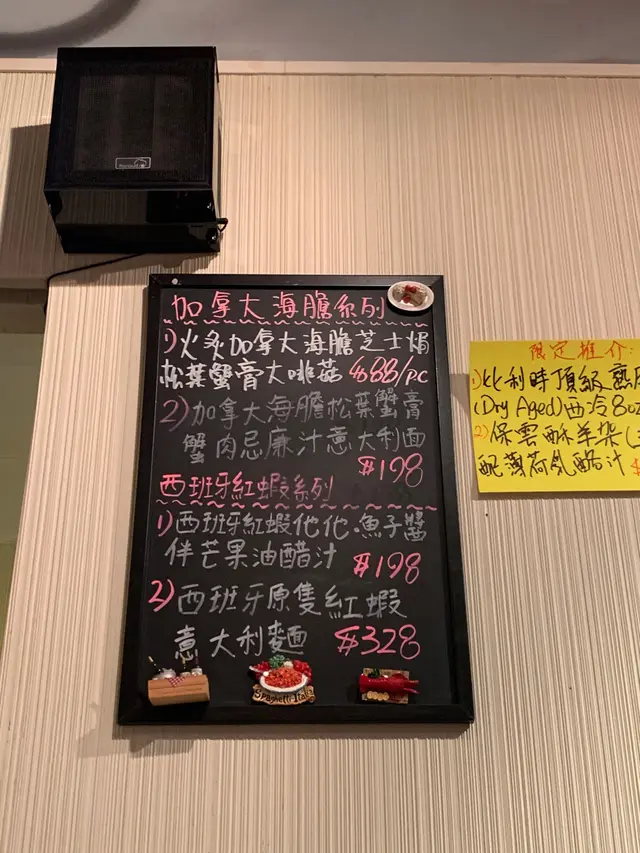 加拿大海膽系列
1)火炙加拿大海膽芝士焗
松葉蟹膏大啡菇 $88/PC
2)加拿大海膽松葉蟹膏
蟹肉忌廉汁意大利面
$198
西班牙紅蝦系列
1)西班牙紅蝦他他.魚子醬
伴芒果油醋汁 $198
2)西班牙原隻紅蝦
意大利麵 $328
Spaghetti
限定推介:
1)比利時頂級熟
(Dry Aged)西冷8oz
2)保雲酥羊架
配薄荷乳酪汁